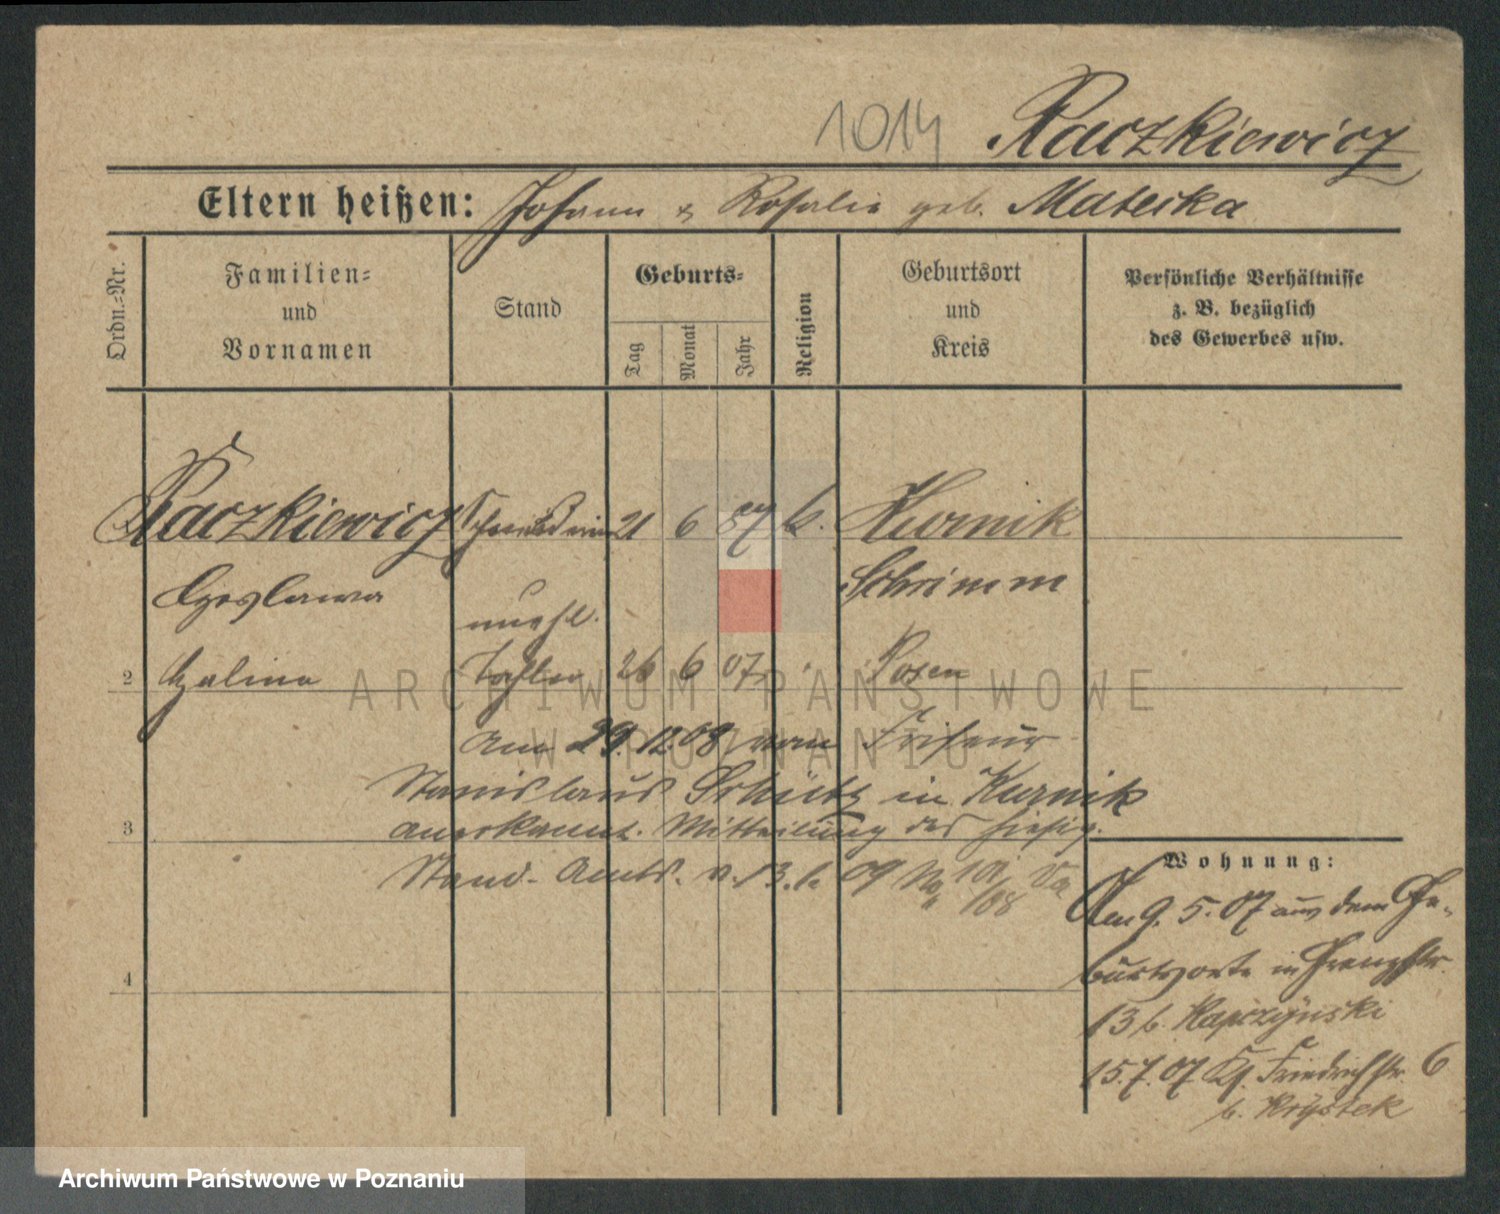 1014 Raczkiewicz
Eltern heißen: Johann & Rosalie geb. Mateika
Ordn.-Nr.
Familien-
und
Vornamen
Stand
Geburts-
Tag
Monat
Jahr
Religion
Geburtsort
und
Kreis
Persönliche Verhältnisse
z. B. bezüglich
des Gewerbes usw.
Raczkiewicz Schneiderin 21 6 87 k. Kurnik
Czeslawa unehl. Schrimm
2 Halina Tochter 26 6 07 Posen
am 29.12.08 vom Friseur
Stanislaus Schütz in Kurnik
3 anerkannt. Mitteilung des hiesig.
Stand. Amts. v. 13.1. 09 No 101/08
Wohnung:
Am 9. 5. 07 aus dem Ge-
burtsorte in
4
13 b. Kapczynski
15.7.07 Kl. Friedrichstr. 6
b. Krystek
ARCHIWUM PAŃSTWOWE
W POZNANIU
Archiwum Państwowe w Poznaniu